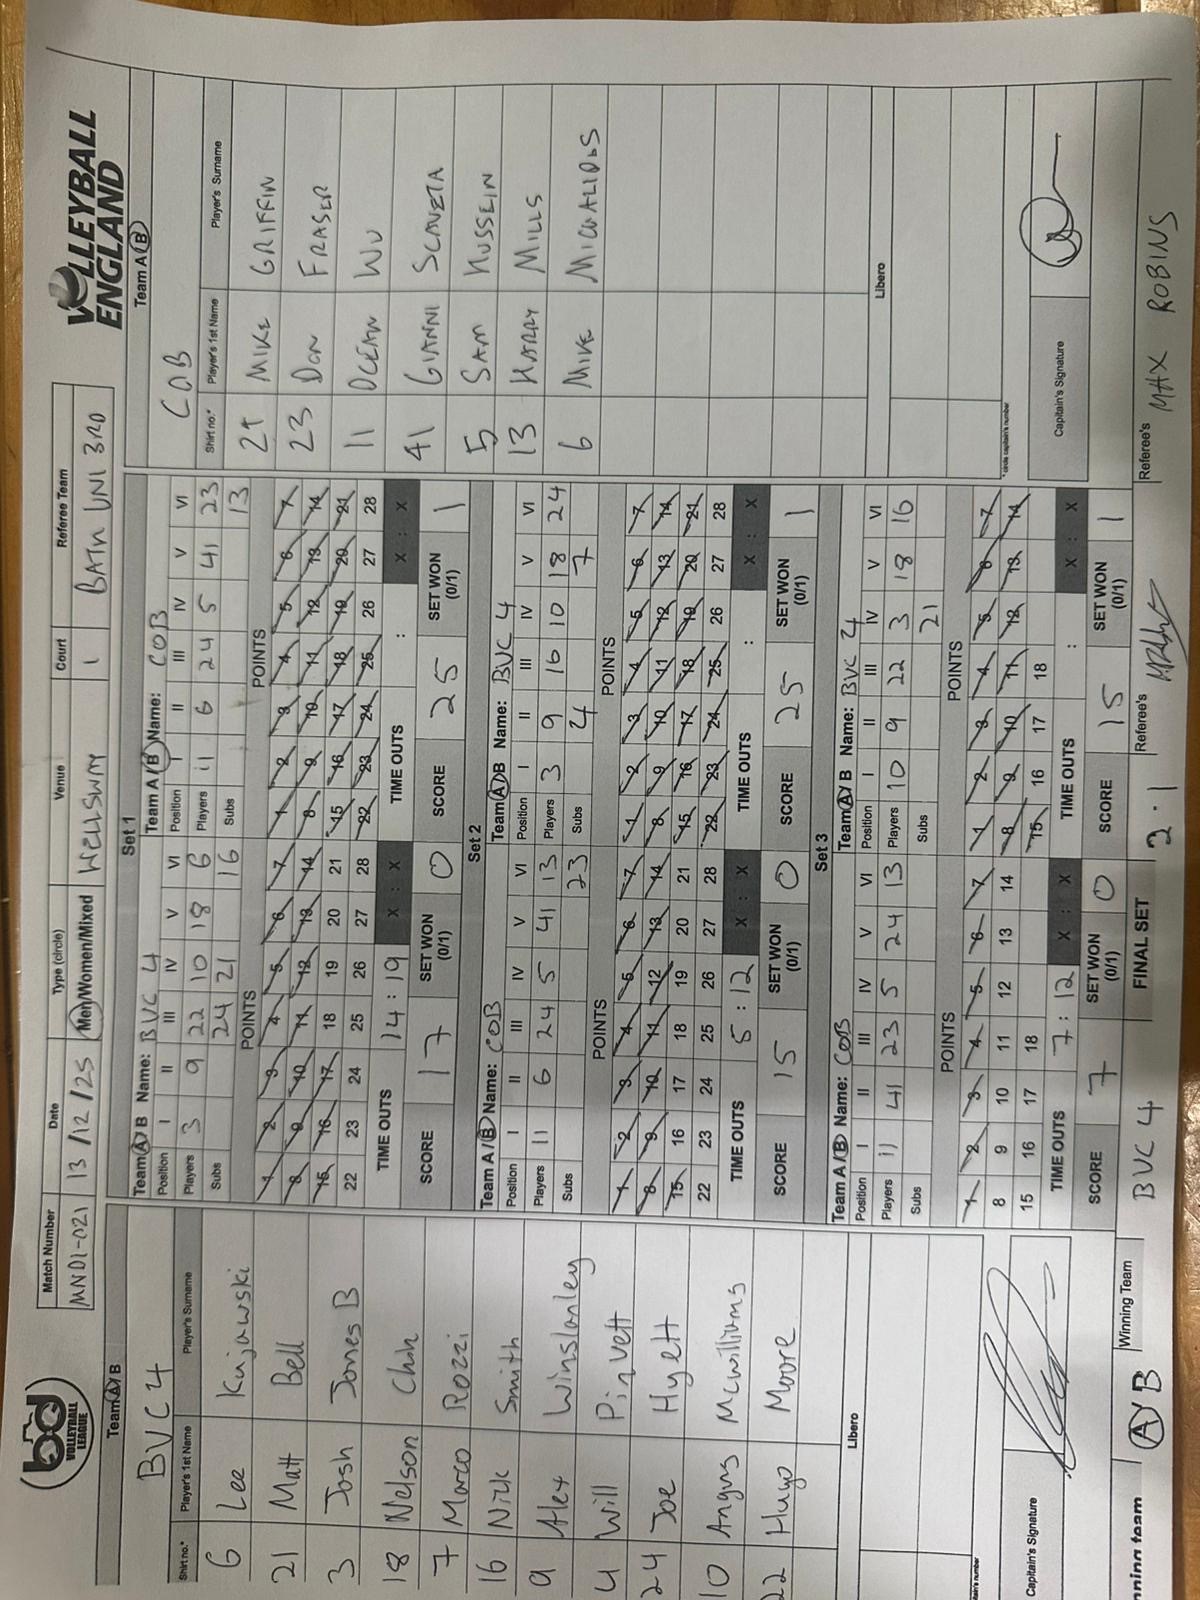 bd
VOLLEYBALL
LEAGUE
Match Number
Date
Type (circle)
Venue
Court
Referee Team
MND1-021
13/12/25
Men/Women/Mixed
WELLSWAY
1
BATH UNI 3RD
VOLLEYBALL
ENGLAND
Team A/B
BVC 4
Shirt no.* Player's 1st Name Player's Surname
6 Lee Kujawski
21 Matt Bell
3 Josh Jones B
18 Nelson Chih
7 Marco Rozzi
16 Nick Smith
9 Alex Winslanley
4 Will Pinvett
24 Joe Hyett
10 Angus Mcwilliams
22 Hugo Moore
Libero
Captain's Signature
Set 1
Team A/B Name: BVC 4
Position I II III IV V VI
Players 3 9 22 10 18 6
Subs 24 21 16
POINTS
1 2 3 4 5 6 7
8 9 10 11 12 13 14
15 16 17 18 19 20 21
22 23 24 25 26 27 28
TIME OUTS 14 : 19 X : X
SCORE 17 SET WON (0/1) 0
Team A/B Name: COB
Position I II III IV V VI
Players 11 6 24 5 41 23
Subs 13
POINTS
1 2 3 4 5 6 7
8 9 10 11 12 13 14
15 16 17 18 19 20 21
22 23 24 25 26 27 28
TIME OUTS : X : X
SCORE 25 SET WON (0/1) 1
Set 2
Team A/B Name: COB
Position I II III IV V VI
Players 11 6 24 5 41 13
Subs 23
POINTS
1 2 3 4 5 6 7
8 9 10 11 12 13 14
15 16 17 18 19 20 21
22 23 24 25 26 27 28
TIME OUTS 5 : 12 X : X
SCORE 15 SET WON (0/1) 0
Team A/B Name: BVC 4
Position I II III IV V VI
Players 3 9 16 10 18 24
Subs 4 7
POINTS
1 2 3 4 5 6 7
8 9 10 11 12 13 14
15 16 17 18 19 20 21
22 23 24 25 26 27 28
TIME OUTS : X : X
SCORE 25 SET WON (0/1) 1
Set 3
Team A/B Name: COB
Position I II III IV V VI
Players 11 41 23 5 24 13
Subs
POINTS
1 2 3 4 5 6 7
8 9 10 11 12 13 14
15 16 17 18
TIME OUTS 7 : 12 X : X
SCORE 7 SET WON (0/1) 0
Team A/B Name: BVC 4
Position I II III IV V VI
Players 10 9 22 3 18 16
Subs 21
POINTS
1 2 3 4 5 6 7
8 9 10 11 12 13 14
15 16 17 18
TIME OUTS : X : X
SCORE 15 SET WON (0/1) 1
Team A/B
COB
Shirt no.* Player's 1st Name Player's Surname
MIKE GRIFFIN
23 DON FRASER
11 OCEAN WU
41 GIANNI
5 SAM HUSSEIN
13 HARRY MILLS
6 MIKE
Libero
* circle captain's number
Captain's Signature
A/B
Winning Team
BVC 4
FINAL SET
2-1
Referee's
Referee's
MAX ROBINS